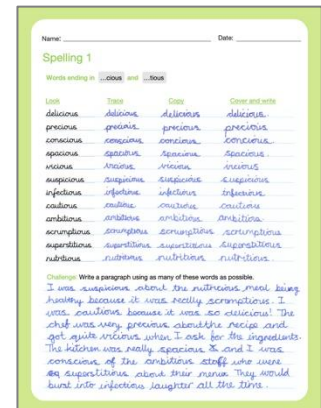 Name: Date:
Spelling 1
Words ending in ...cious and ...tious
Look Trace Copy Cover and write
delicious delicious delicious delicious.
precious precious precious precious
conscious conscious concious concious.
spacious spacious spacious spacious.
vicious vicious vicious vicious.
suspicious suspicious suspicious suspicious
infectious infectious infectious infectious.
cautious cautious cautious cautious
ambitious ambitious ambitious ambitious
scrumptious scrumptious scrumptious scrumptious.
superstitious superstitious superstitious superstitious
nutritious nutritious nutritious nutritious.
Challenge: Write a paragraph using as many of these words as possible.
I was suspicious about the nutricious meal being
healthy because it was really scromptions. I
was cautious because it was so delicious! The
chef was very precious about the recipe and
got quite vicious when I ask for the ingredients.
The kitchen was really spacious & and I was
conscious of the ambitious staff who were
superstitious about their menu. They would
burst into infectious laughter all the time.